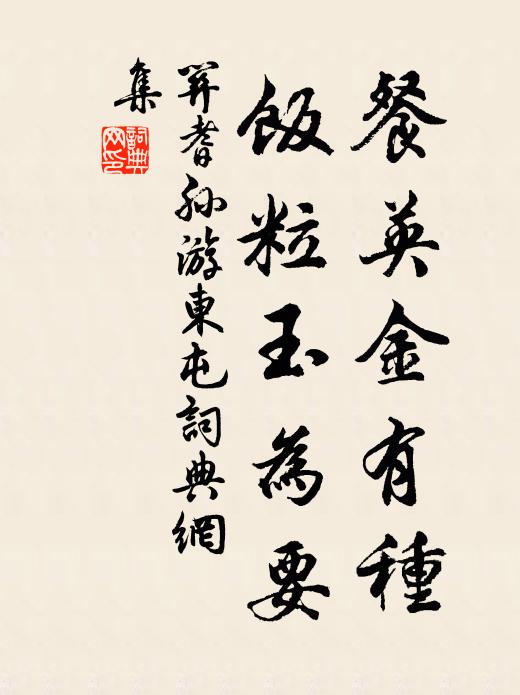 餐英金有種
飯粒玉為要
耆孫游東屯詞典網
集
詞典网印